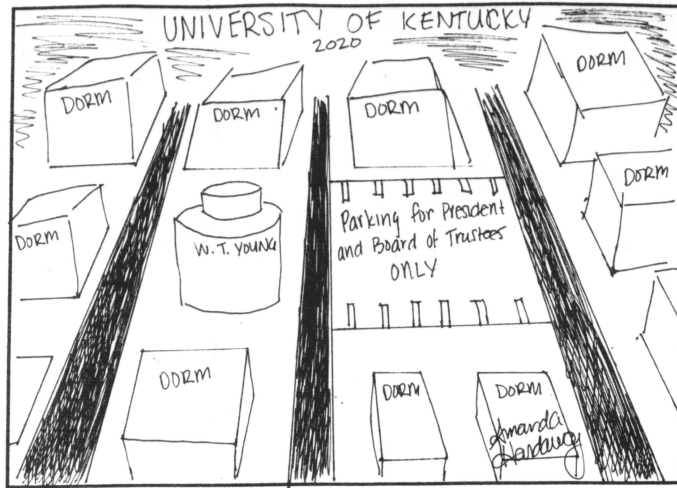 UNIVERSITY OF KENTUCKY
2020
DORM
DORM
DORM
DORM
DORM
DORM
W.T. YOUNG
Parking for President
and Board of Trustees
ONLY
DORM
DORM
DORM
Amanda